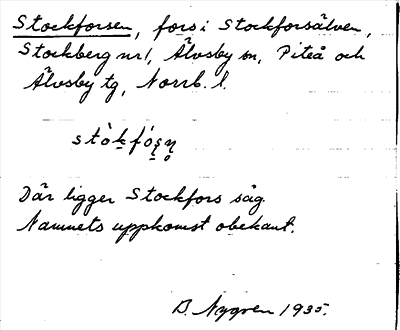 Stockforsen, fors i Stockforsälven,
Stockberg nr 1, Älvsby sn, Piteå och
Älvsby tg, Norrb. l.
Där ligger Stockfors såg.
Namnets uppkomst obekant.
B. Nygren 1935.